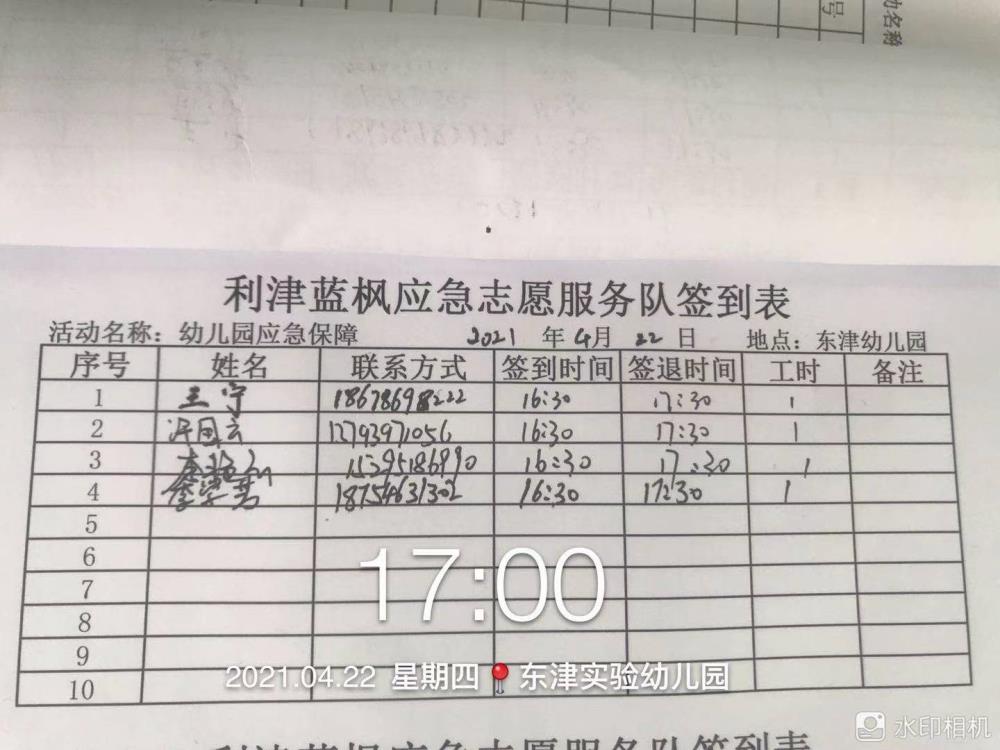 动名称
号
利津蓝枫应急志愿服务队签到表
活动名称：幼儿园应急保障 2021 年 4月 22 日 地点：东津幼儿园
序号 姓名 联系方式 签到时间 签退时间 工时 备注
1 王宁 18678698222 16:30 17:30 1
2 12793971056 16:30 17:30 1
3 15295186990 16:30 17:30 1
4 18754631302 16:30 17:30 1
5
6
7
8
9
10
17:00
2021.04.22 星期四 东津实验幼儿园
利津蓝枫应急志愿服务队签到表
水印相机